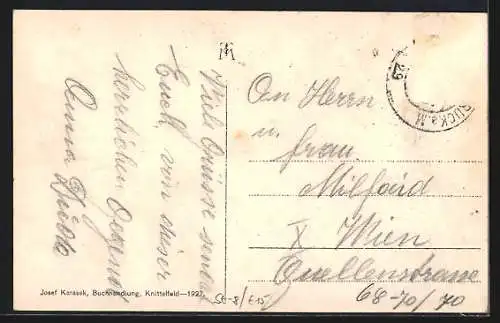 Viele Grüsse sendet
Euch von dieser
herrlichen Gegend
Anna
An Herrn
u. Frau
Milfaid
X Wien
Quellenstrasse
68-70/70
BRUCK a. M.
29
Josef Karasek, Buchhandlung, Knittelfeld—1927